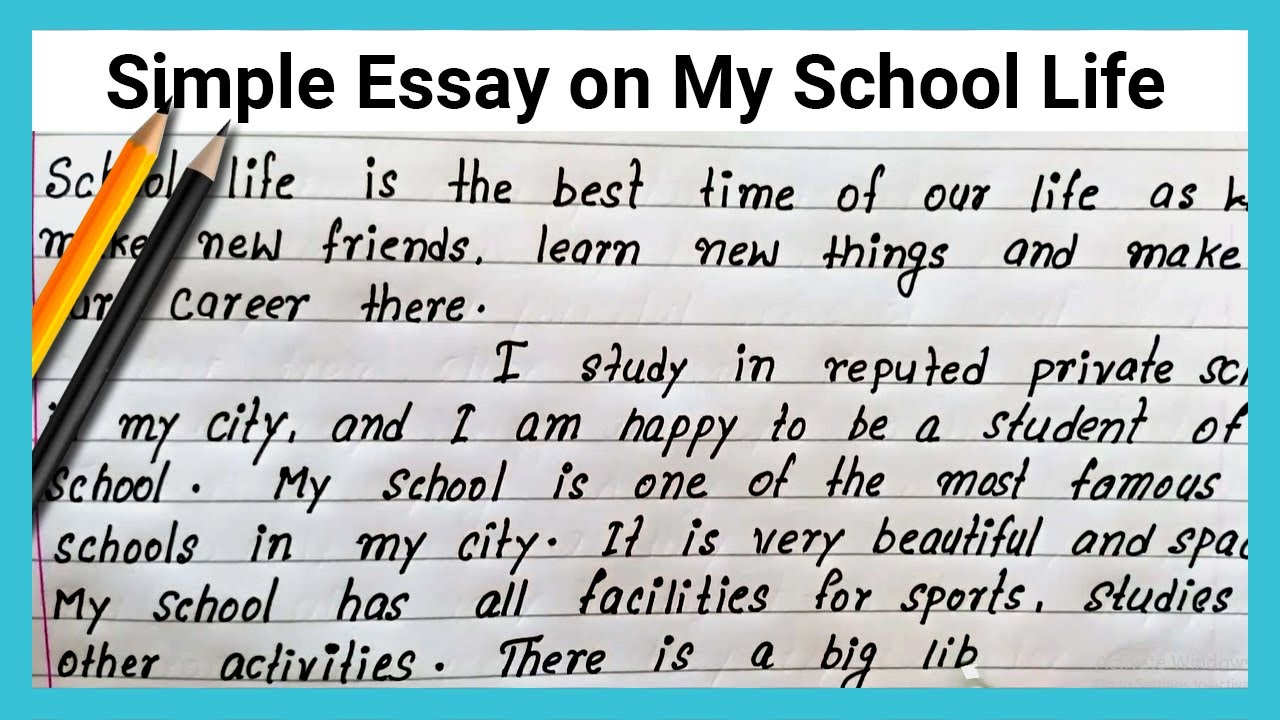 Simple Essay on My School Life
School life is the best time of our life as
make new friends, learn new things and make
our career there.
I study in reputed private
my city, and I am happy to be a student of
school. My school is one of the most famous
schools in my city. It is very beautiful and
My school has all facilities for sports, studies
other activities. There is a big lib
Activate Windows
Go to Settings to activa